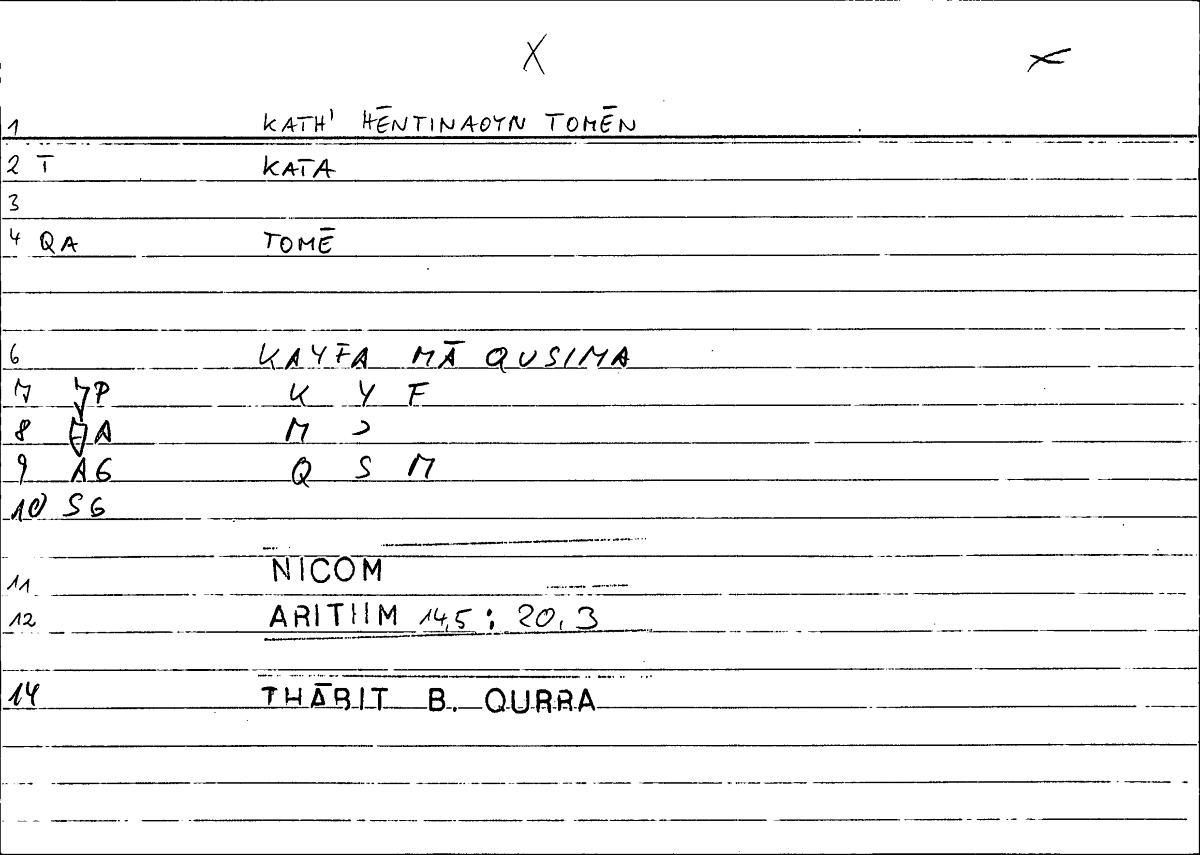 X X
1 KATH' HĒNTINAOYN TOMĒN
2 T KATA
3
4 QA TOMĒ
6 KAYFA MĀ QUSIMA
7 P K Y F
8 A M
9 AG Q S M
10 SG
11 NICOM
12 ARITHM 14,5 : 20,3
14 THĀBIT B. QURRA